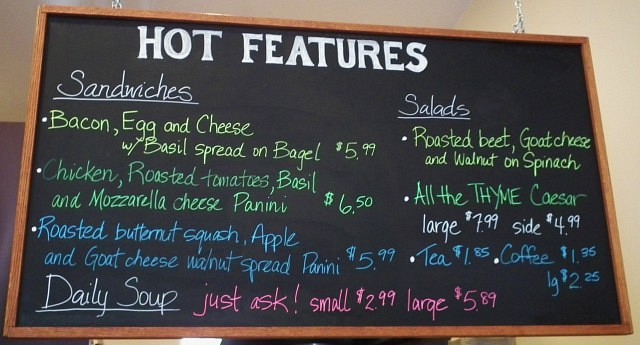 HOT FEATURES
Sandwiches
• Bacon, Egg and Cheese
w/ Basil spread on Bagel $5.99
• Chicken, Roasted tomatoes, Basil
and Mozzarella cheese Panini $6.50
• Roasted butternut squash, Apple
and Goat cheese walnut spread Panini $5.99
Salads
• Roasted beet, Goat cheese
and Walnut on Spinach
• All the THYME Caesar
large $7.99 side $4.99
• Tea $1.85 • Coffee $1.35
lg $2.25
Daily Soup just ask! small $2.99 large $5.89